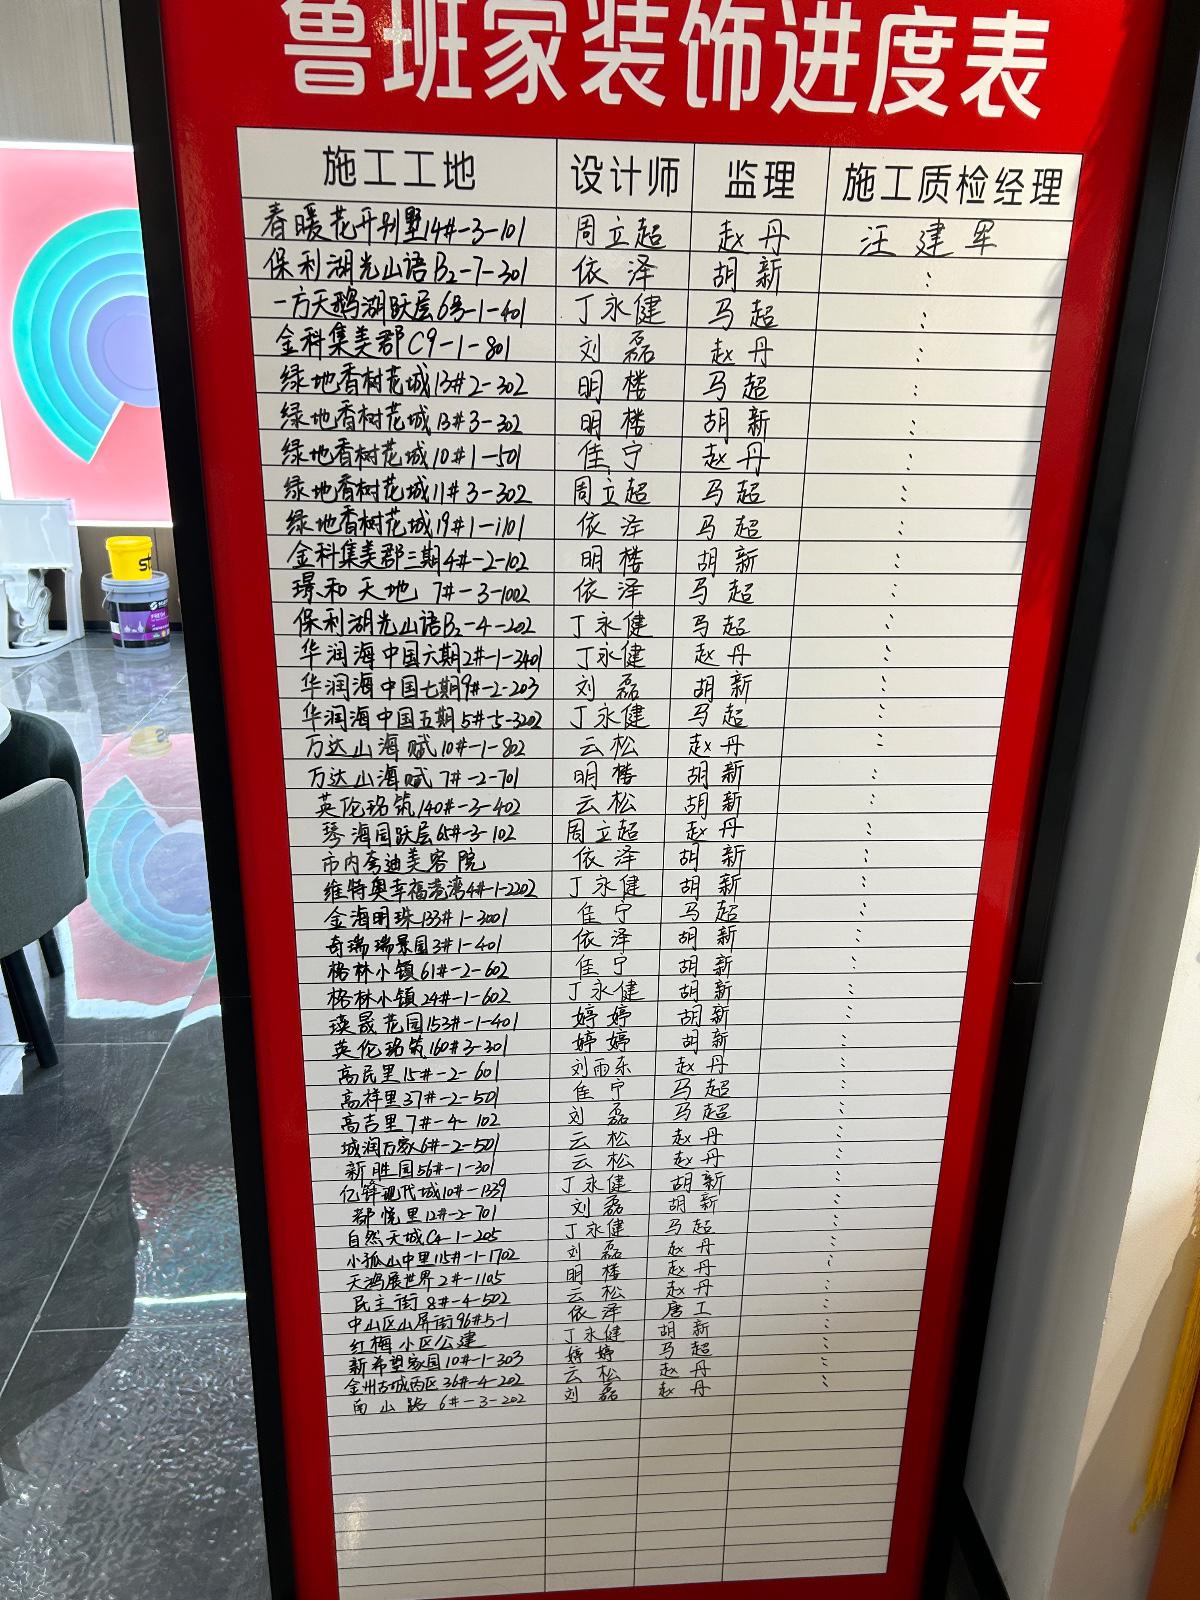 鲁班家装饰进度表
施工工地 设计师 监理 施工质检经理
春暖花开别墅14#-3-101 周立超 赵丹 汪建军
保利湖光山语B2-7-301 依泽 胡新 :
一方天鹅湖跃层6号-1-401 丁永健 马超 :
金科集美郡C9-1-801 刘磊 赵丹 :
绿地香树花城13#2-302 明楼 马超 :
绿地香树花城13#3-302 明楼 胡新 :
绿地香树花城10#1-501 佳宁 赵丹 :
绿地香树花城11#3-302 周立超 马超 :
绿地香树花城19#1-1101 依泽 马超 :
金科集美郡二期4#-2-102 明楼 胡新 :
璟和天地 7#-3-1002 依泽 马超 :
保利湖光山语B2-4-202 丁永健 马超 :
华润海中国六期2#-1-3401 丁永健 赵丹 :
华润海中国七期9#-2-203 刘磊 胡新 :
华润海中国五期5#-5-3202 丁永健 马超 :
万达山海赋10#-1-802 云松 赵丹 :
万达山海赋7#-2-701 明楼 胡新 :
英伦珞筑140#-3-402 云松 胡新 :
琴海园跃层65#-3-102 周立超 赵丹 :
市内奢迪美容院 依泽 胡新 :
维特奥幸福港湾4#-1-2202 丁永健 胡新 :
金海明珠133#1-3001 佳宁 马超 :
奇瑞瑞景园3#1-401 依泽 胡新 :
格林小镇61#-2-602 佳宁 胡新 :
格林小镇24#-1-602 丁永健 胡新 :
瑛晟花园153#-1-401 婷婷 胡新 :
英伦珞筑160#3-301 婷婷 胡新 :
高民里15#-2-601 刘雨乐 赵丹 :
高祥里37#-2-501 佳宁 马超 :
高吉里7#-4-102 刘磊 马超 :
城润万家6#-2-501 云松 赵丹 :
新胜园56#-1-301 云松 赵丹 :
亿锋现代城10#-1339 丁永健 胡新 :
郡悦里12#-2-701 刘磊 胡新 :
自然天城C4-1-205 丁永健 马超 :
小孤山中里115#-1-1702 刘磊 赵丹 :
天鸿展世界2#-1105 明楼 赵丹 :
民主街8#-4-502 云松 赵丹 :
中山区山屏街96#5-1 依泽 唐工 :
红梅小区公建 丁永健 胡新 :
新希望家园10#-1-303 婷婷 马超 :
金州古城丙区36#-4-202 云松 赵丹 :
南山路6#-3-202 刘磊 赵丹